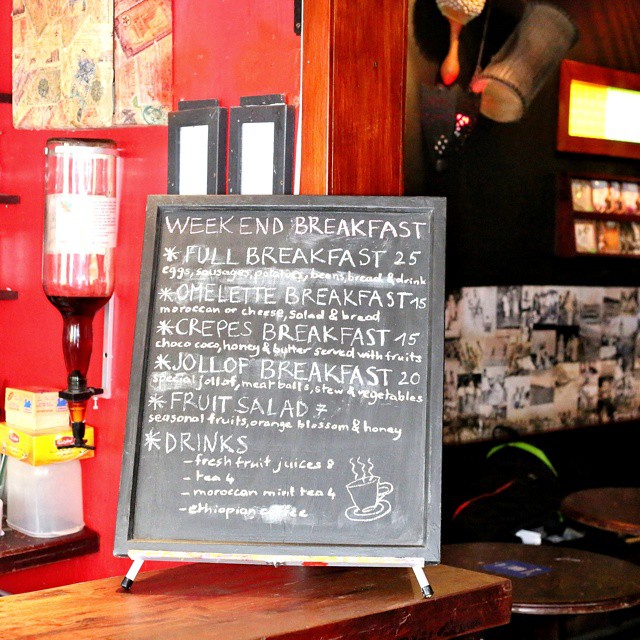 WEEKEND BREAKFAST
* FULL BREAKFAST 25
eggs, sausages, potatoes, beans, bread & drink
* OMELETTE BREAKFAST 15
moroccan or cheese, salad & bread
* CREPES BREAKFAST 15
choco coco, honey & butter served with fruits
* JOLLOF BREAKFAST 20
special jollof, meatballs, stew & vegetables
* FRUIT SALAD 7
seasonal fruits, orange blossom & honey
* DRINKS
- fresh fruit juices 8
- tea 4
- moroccan mint tea 4
- ethiopian coffee